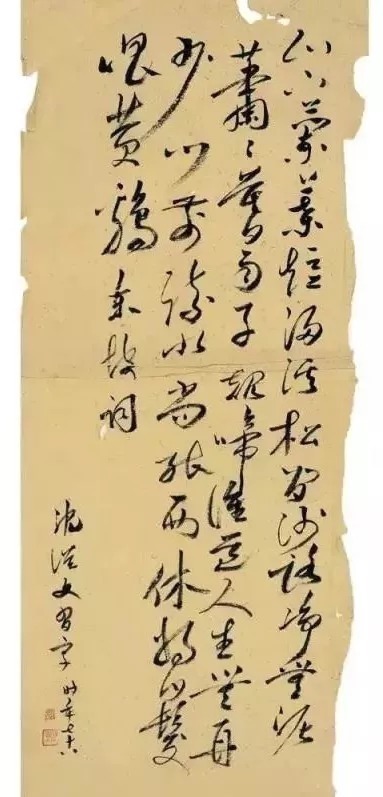 山下蘭葉短浸溪松間沙路净無泥
蕭〻暮雨子規啼誰道人生無再
少門前流水尚能西休將白髮
唱黄鷄東坡詞
沈從文習字时年七十